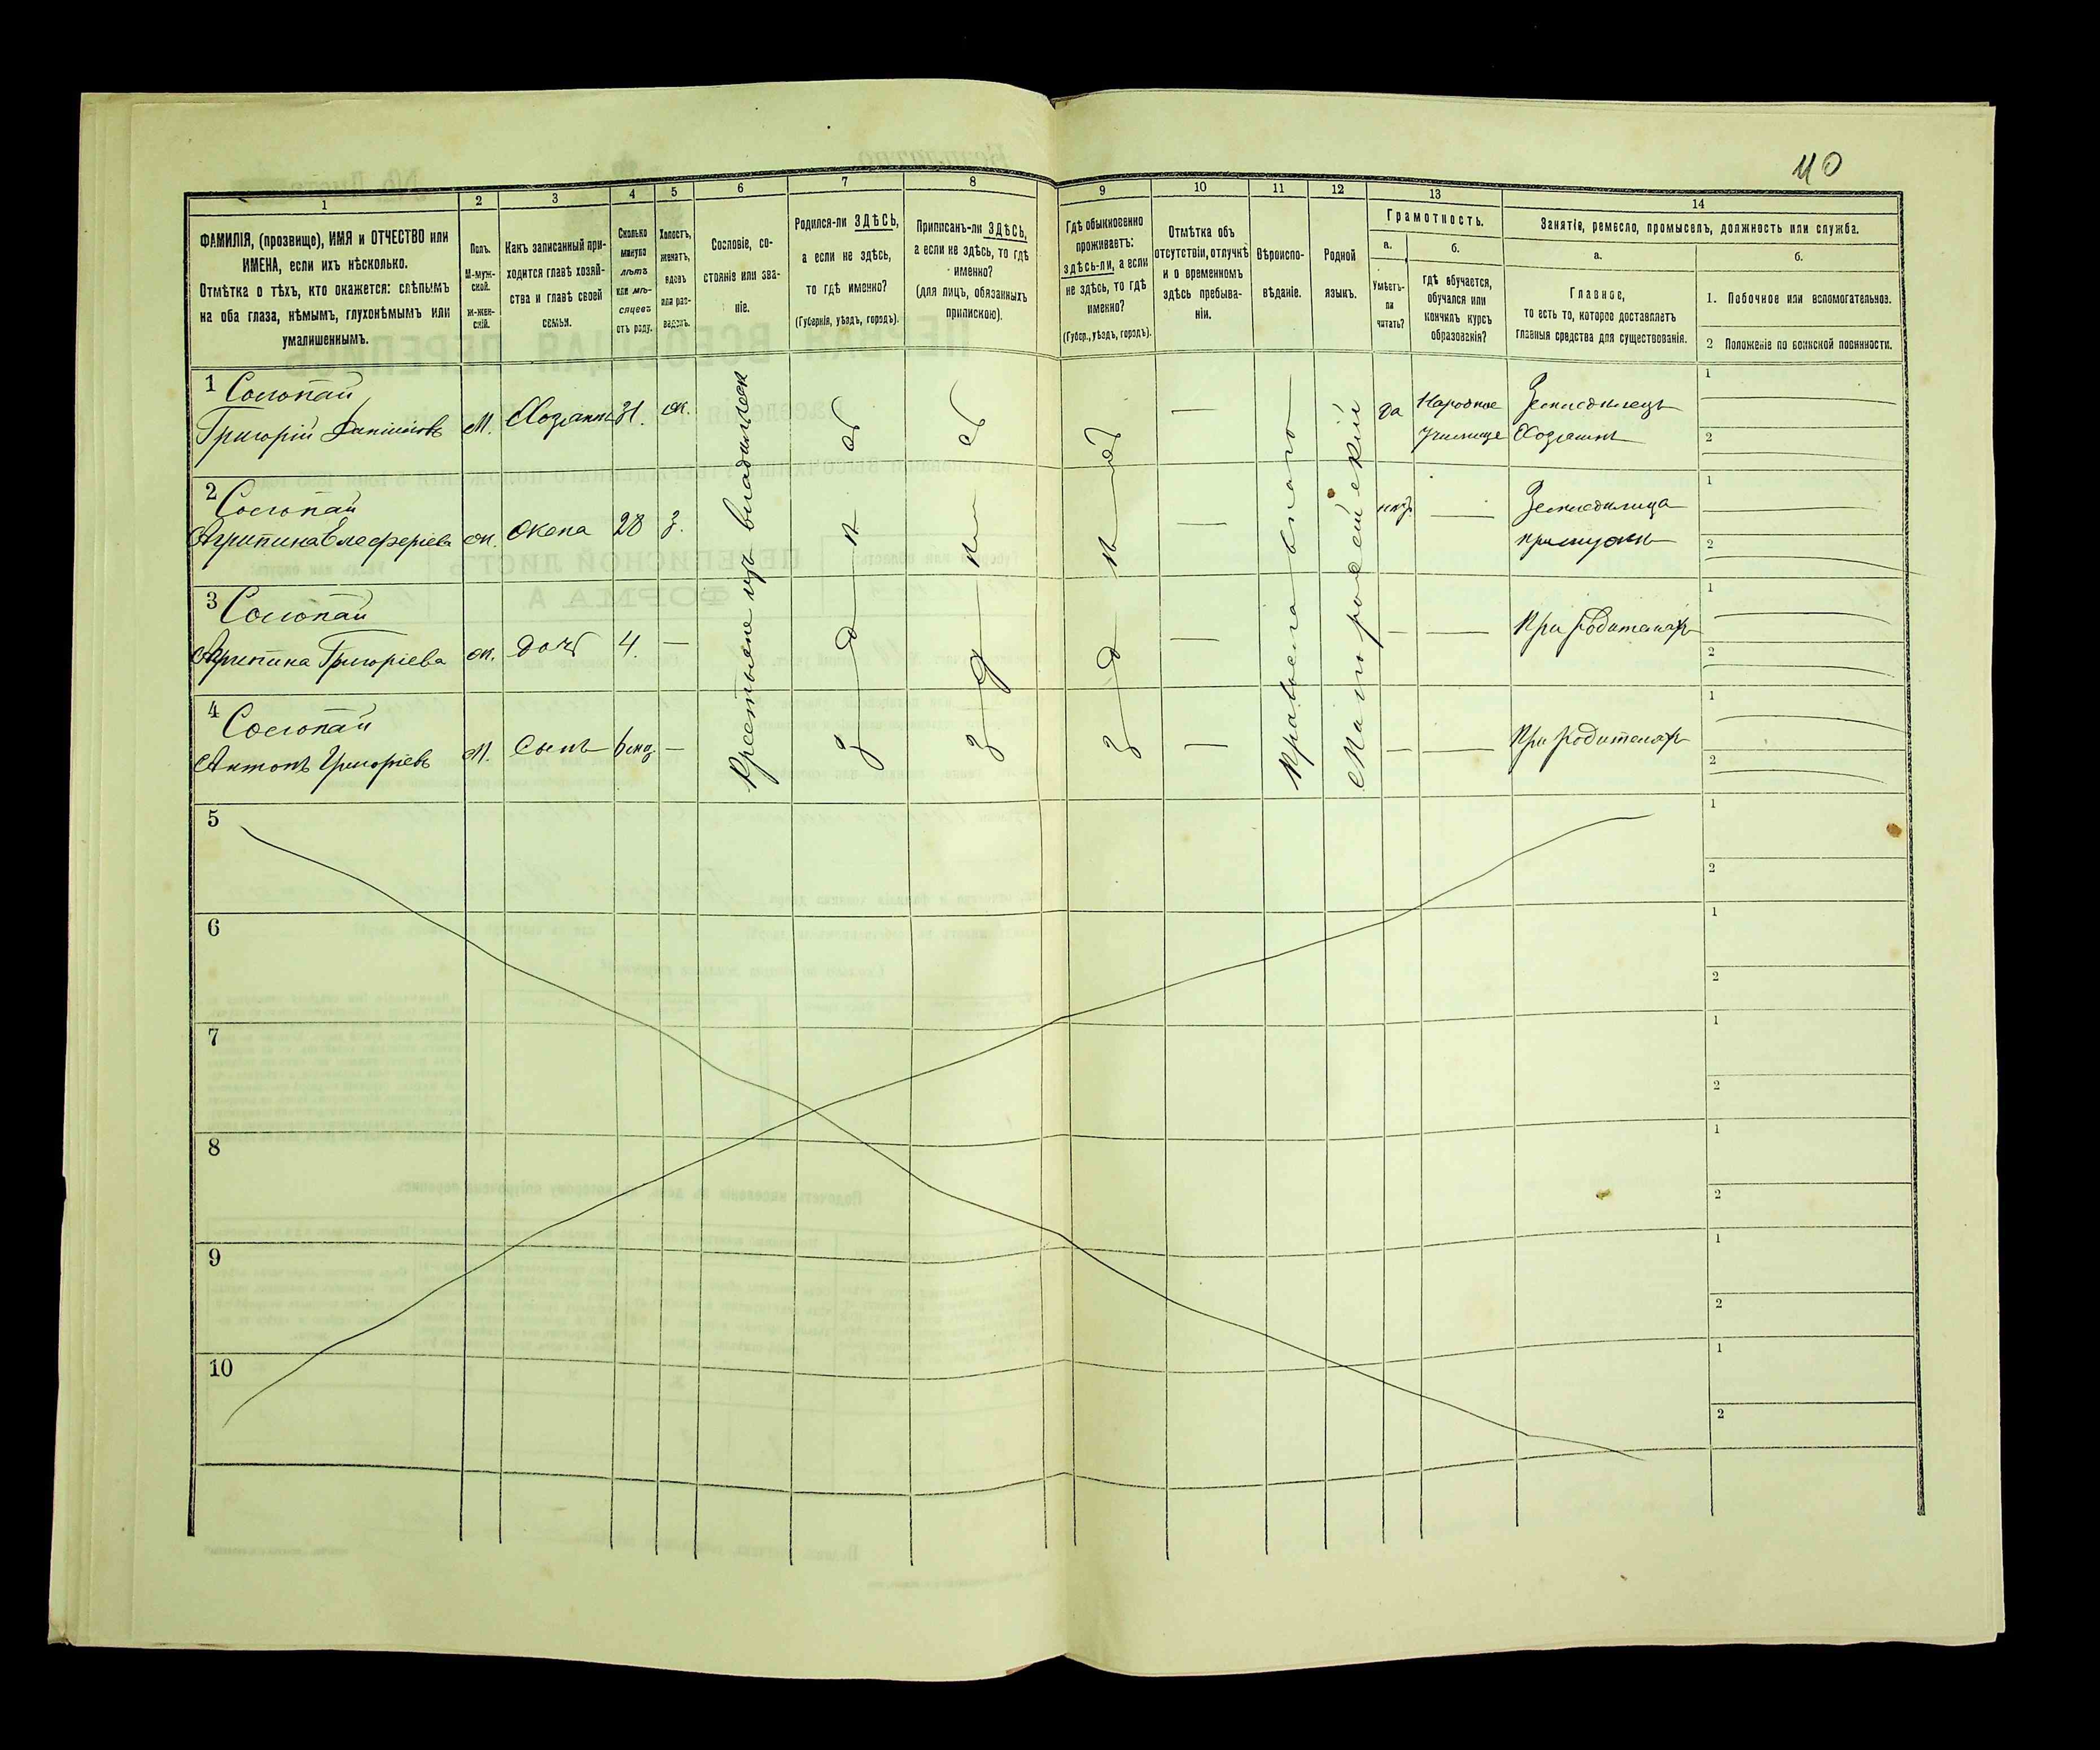 40
1 2 3 4 5 6 7 8 9 10 11 12 13 14
ФАМИЛІЯ, (прозвище), ИМЯ и ОТЧЕСТВО или
ИМЕНА, если ихъ нѣсколько.
Отмѣтка о тѣхъ, кто окажется: слѣпымъ
на оба глаза, нѣмымъ, глухонѣмымъ или
умалишеннымъ.
Полъ.
М-муж-
ской.
Ж-жен-
скій.
Какъ записанный при-
ходится главѣ хозяй-
ства и главѣ своей
семьи.
Сколько
минуло
лѣтъ
или мѣ-
сяцевъ
отъ роду.
Холостъ,
женатъ,
вдовъ
или раз-
веденъ.
Сословіе, со-
стояніе или зва-
ніе.
Родился-ли ЗДѢСЬ,
а если не здѣсь,
то гдѣ именно?
(Губернія, уѣздъ, городъ).
Приписанъ-ли ЗДѢСЬ,
а если не здѣсь, то гдѣ
именно?
(для лицъ, обязанныхъ
припискою).
Гдѣ обыкновенно
проживаетъ:
здѣсь-ли, а если
не здѣсь, то гдѣ
именно?
(Губер., уѣздъ, городъ).
Отмѣтка объ
отсутствіи, отлучкѣ
и о временномъ
здѣсь пребыва-
ніи.
Вѣроиспо-
вѣданіе.
Родной
языкъ.
Грамотность.
а.
Умѣетъ-
ли
читать?
б.
Гдѣ обучается,
обучался или
кончилъ курсъ
образованія?
Занятіе, ремесло, промыселъ, должность или служба.
а.
Главное,
то есть то, которое доставляетъ
главныя средства для существованія.
б.
1. Побочное или вспомогательное.
2 Положеніе по воинской повинности.
1
Григорій
М. Хозяинъ 31. ж.
да Народное
училище
Земледѣлецъ
Хозяинъ
1
2
2
Агрипина Елеферіева
ж. жена 28 з.
нѣтъ
Земледѣлица
при мужѣ
1
2
3
Агрипина Григоріева
ж. дочь 4. —
При родителяхъ
1
2
4
Антонъ Григорьевъ
М. Сынъ 6 мѣс. —
При родителяхъ
1
2
Крестьяне изъ владѣльческ
здѣсь
здѣсь
здѣсь
Православнаго
Малороссійскій
5
1
2
6
1
2
7
1
2
8
1
2
9
1
2
10
1
2